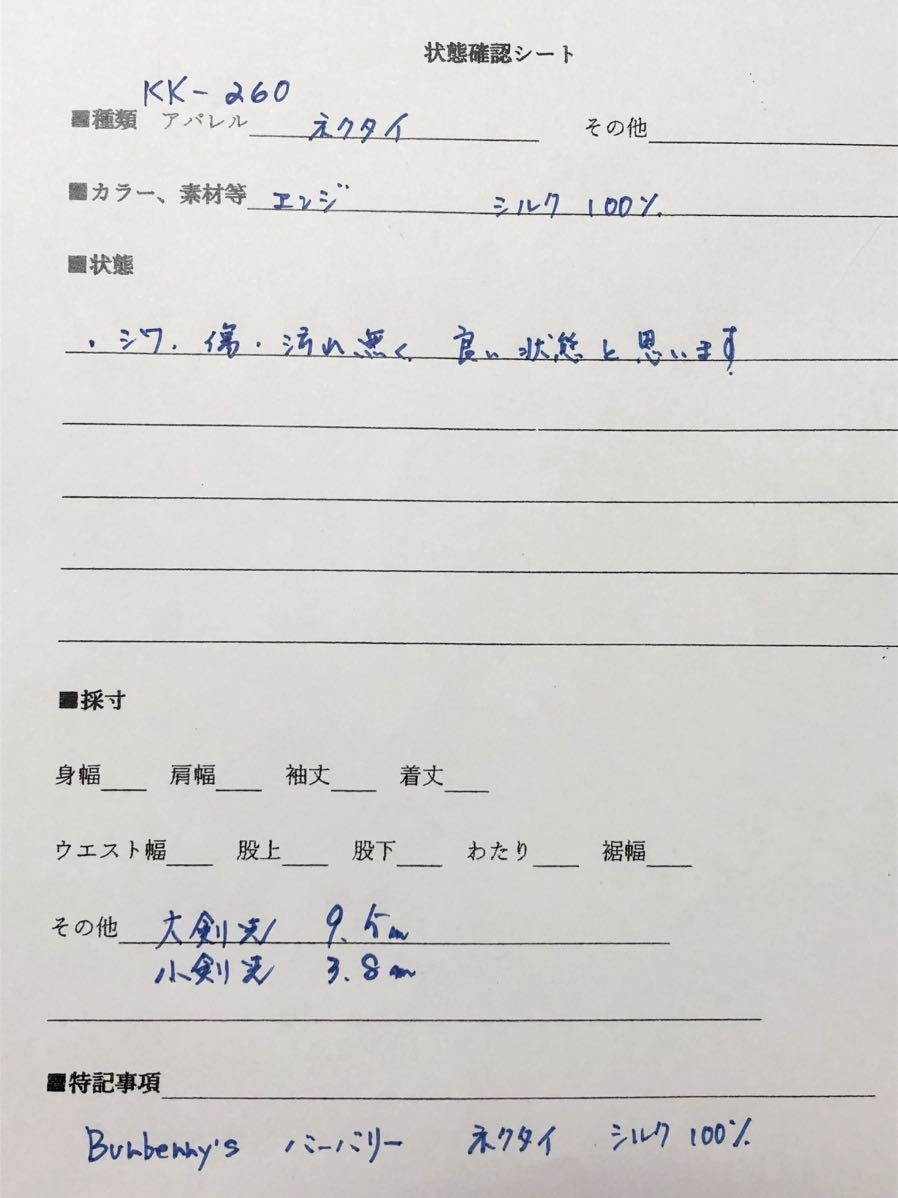 状態確認シート
KK-260
■種類 アパレル ネクタイ その他
■カラー、素材等 エンジ シルク 100%
■状態
・シワ・傷・汚れ無く 良い状態と思います
■採寸
身幅 肩幅 袖丈 着丈
ウエスト幅 股上 股下 わたり 裾幅
その他 大剣先 9.5cm
小剣先 3.8cm
■特記事項
Burberry's バーバリー ネクタイ シルク 100%